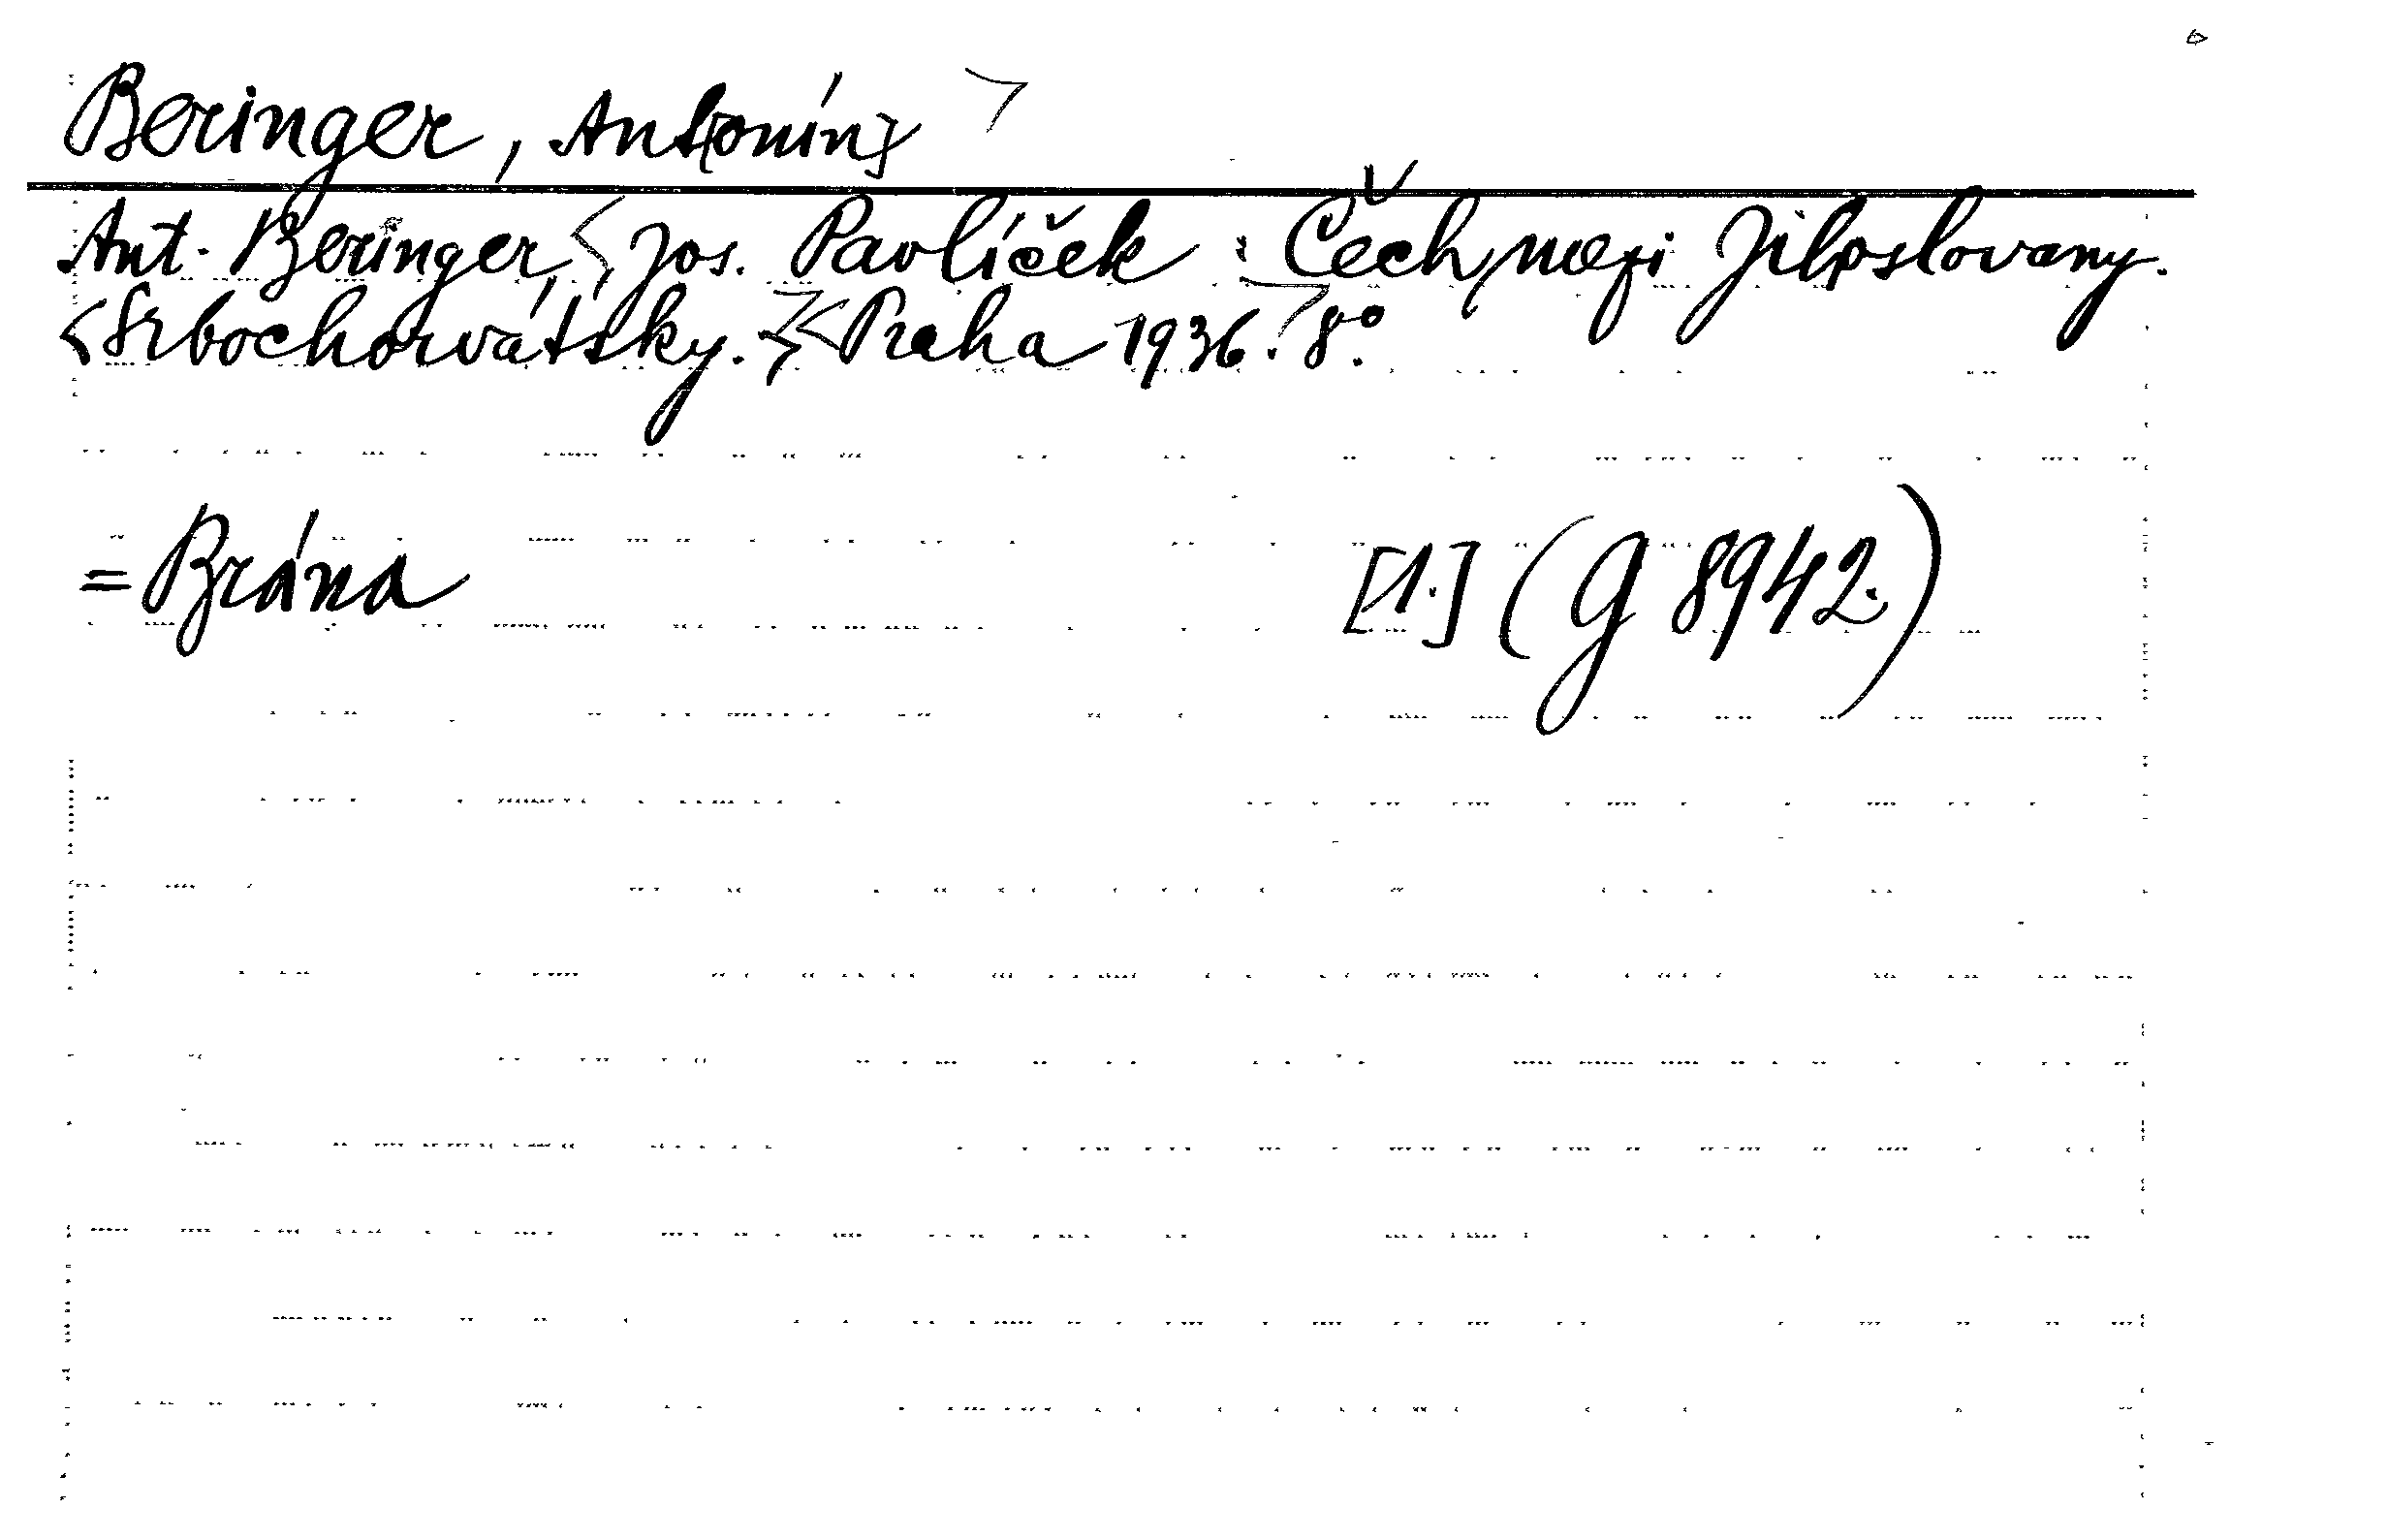 Beringer, Ant[onín]
Ant. Beringer, Jos. Pavlíček: Čech mezi Jihoslovany.
Srbochorvátsky. Praha 1936. 8°.
= Brána [1.] (G 8942.)